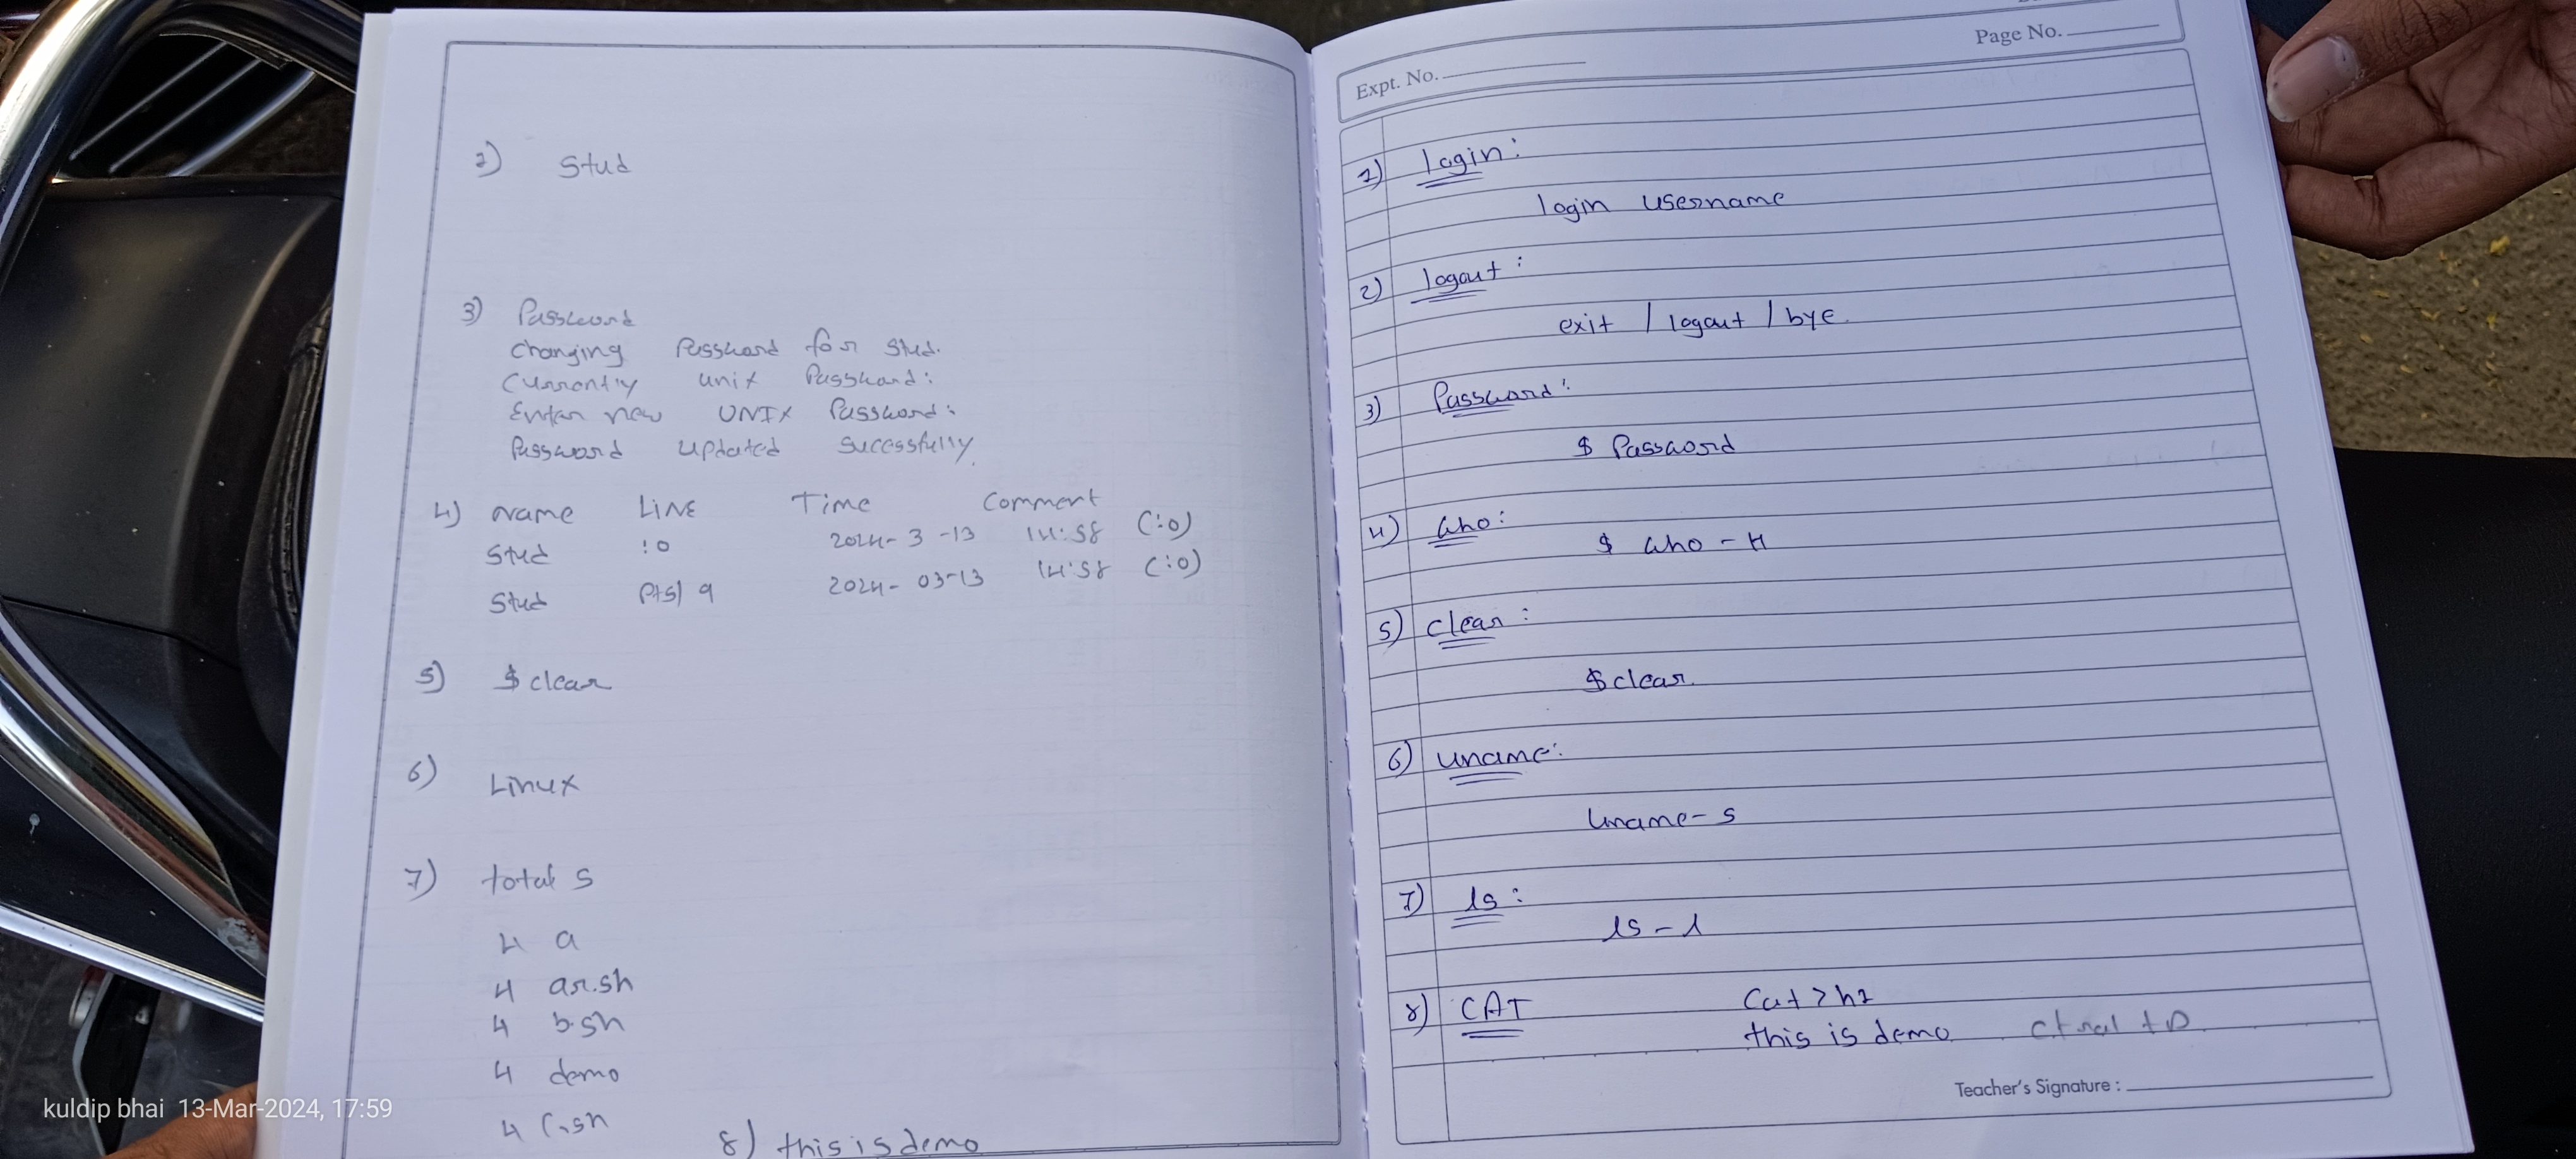 1) Stud
3) Password
changing Password for Stud.
Currently unix Password:
Enter new UNIX Password:
Password updated sucessfully.
4) Name LINE Time Comment
Stud :0 2024-3-13 14:58 (:0)
Stud Pts/9 2024-03-13 14:58 (:0)
5) $ clear
6) Linux
7) total 5
4 a
4 ar.sh
4 b.sh
4 demo
4 c.sh
8) this is demo
Expt. No.
Page No.
1) login:
login username
2) logout:
exit / logout / bye.
3) Password:
$ Password
4) who:
$ who - H
5) clear:
$ clear.
6) uname:
Uname- s
7) ls:
ls - l
8) CAT Cat > h1
this is demo ctral + D
Teacher's Signature :
kuldip bhai 13-Mar-2024, 17:59